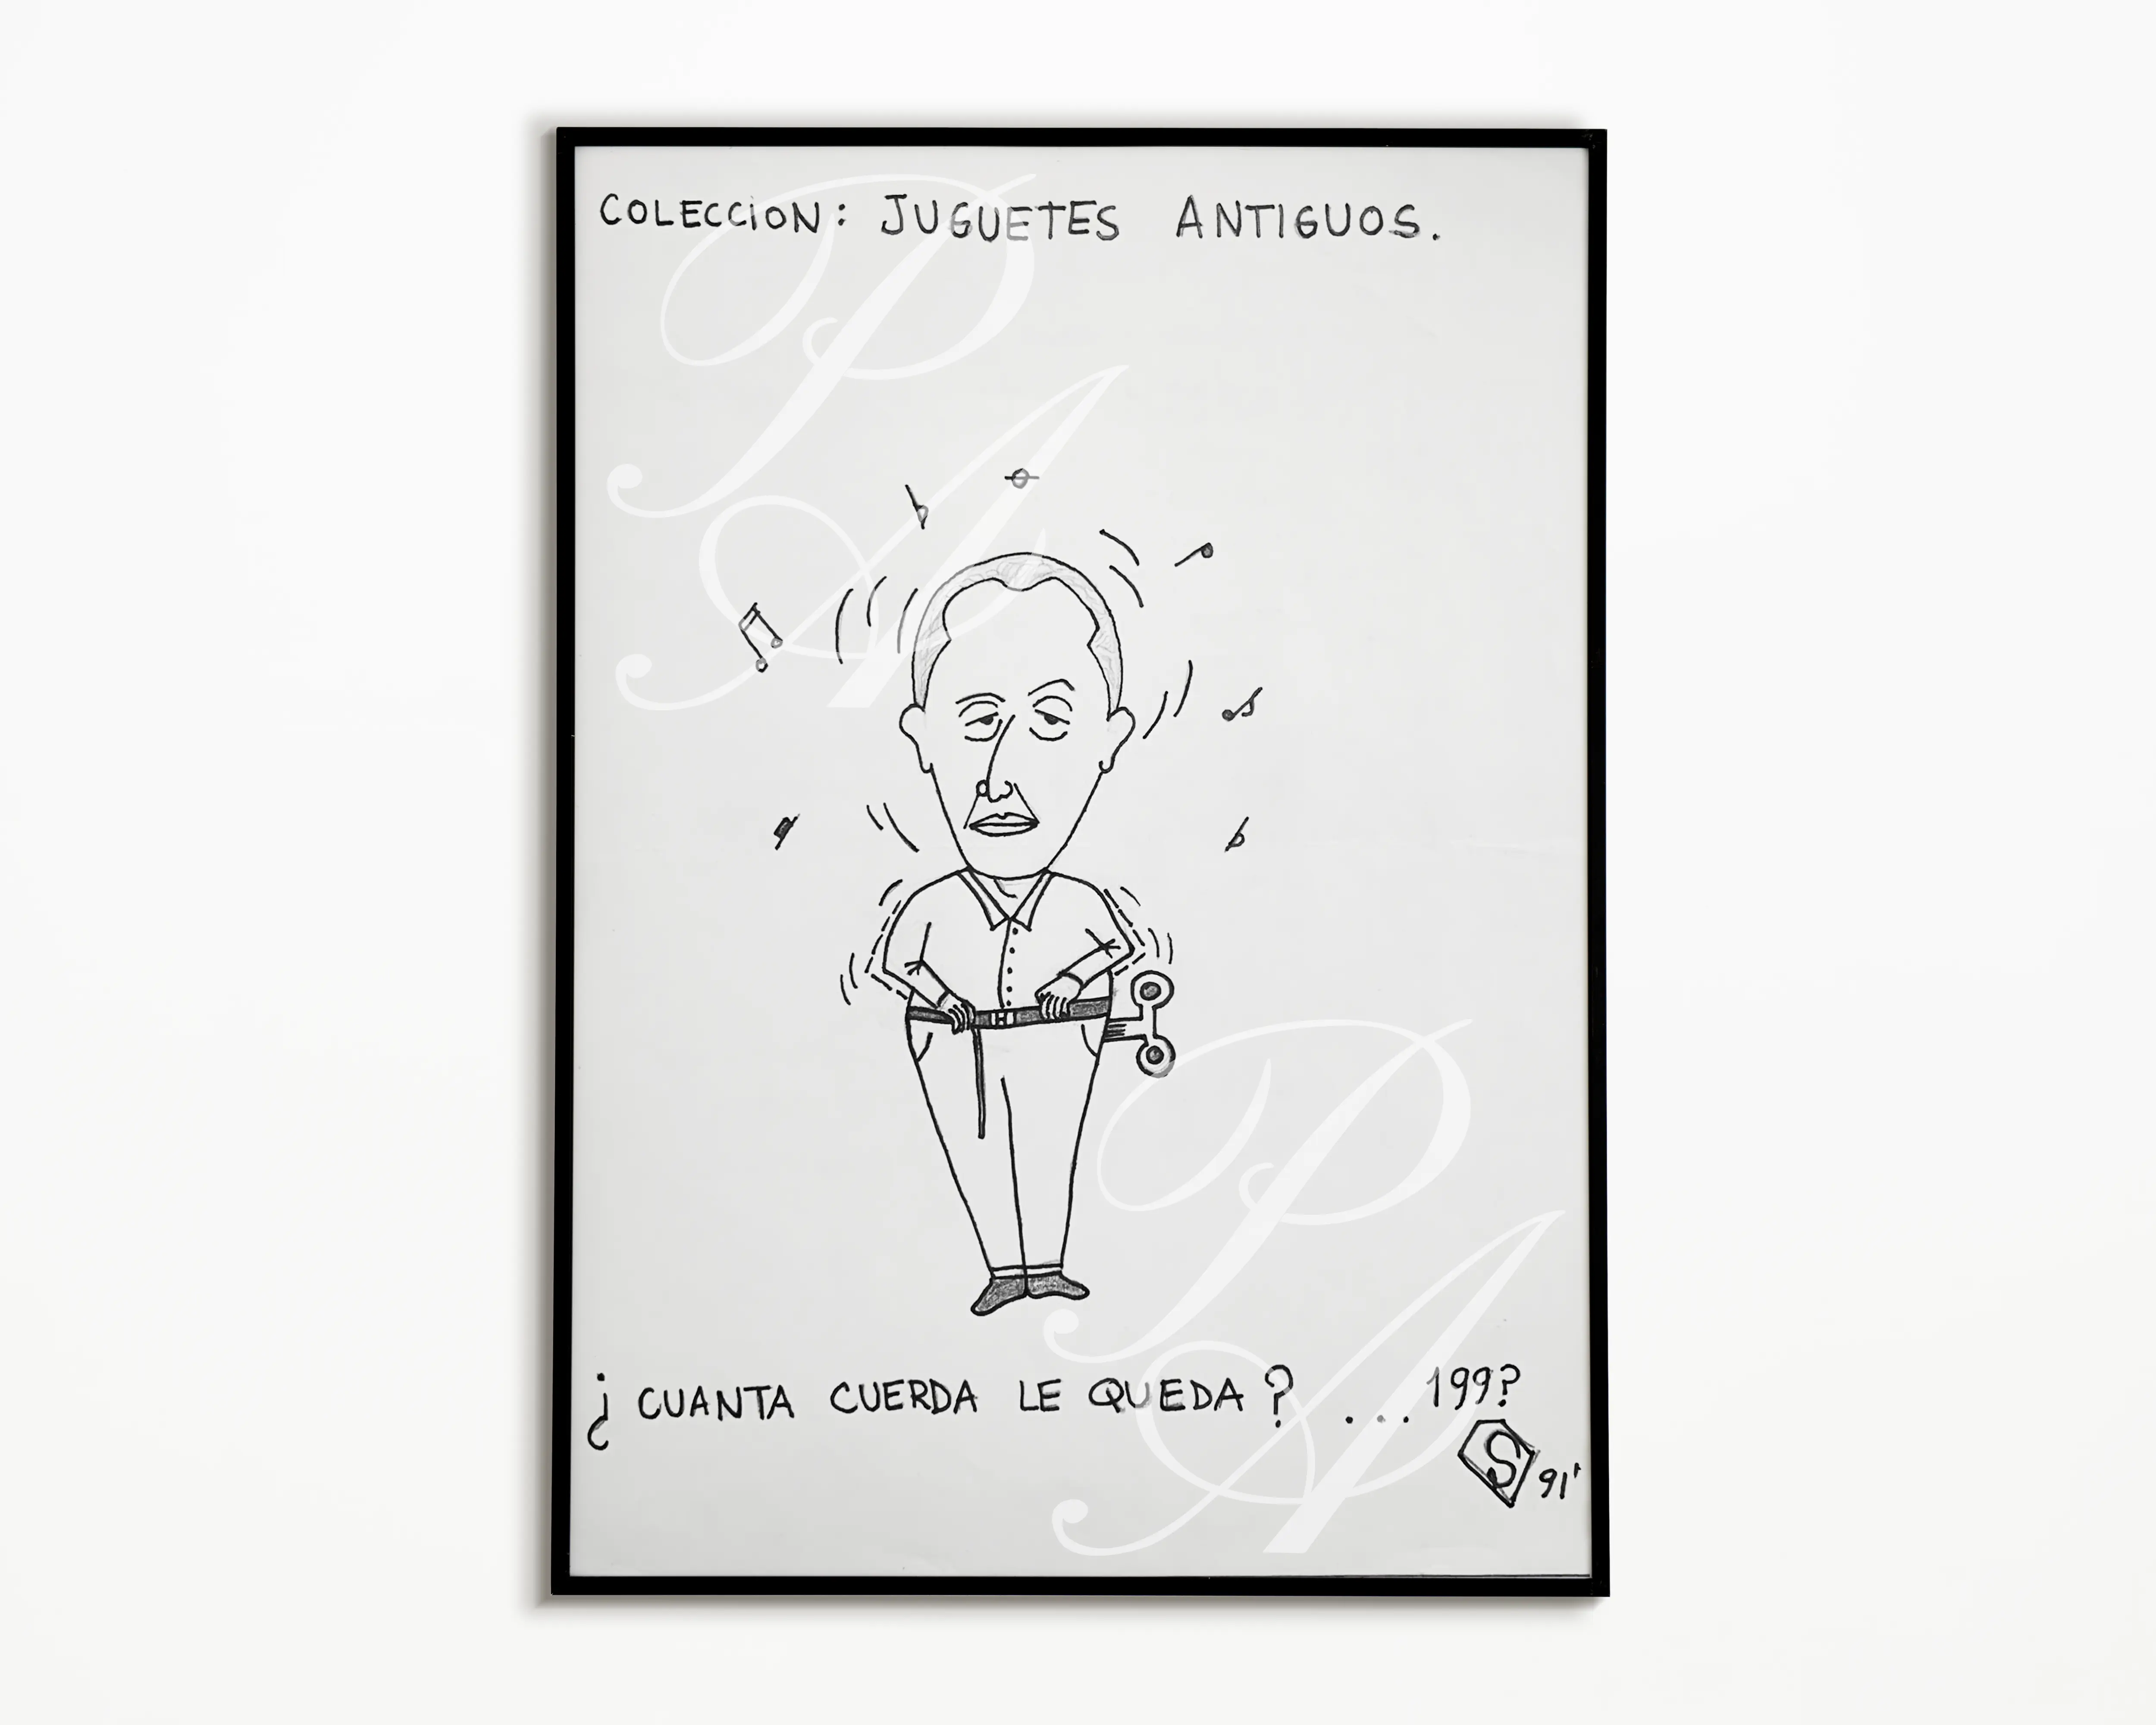 COLECCION: JUGUETES ANTIGUOS.
¿CUANTA CUERDA LE QUEDA? ...199?
S 91'
PA
PA